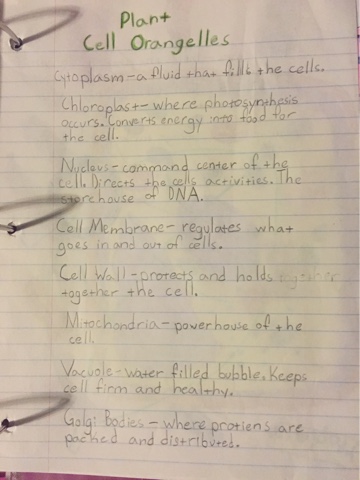 Plant
Cell Orangelles
Cytoplasm - a fluid that fills the cells.
Chloroplast - where photosynthesis
occurs. Converts energy into food for
the cell.
Nucleus - command center of the
cell. Directs the cells activities. The
storehouse of DNA.
Cell Membrane - regulates what
goes in and out of cells.
Cell Wall - protects and holds together
together the cell.
Mitochondria - powerhouse of the
cell.
Vacuole - water filled bubble. Keeps
cell firm and healthy.
Golgi Bodies - where protiens are
packed and distributed.